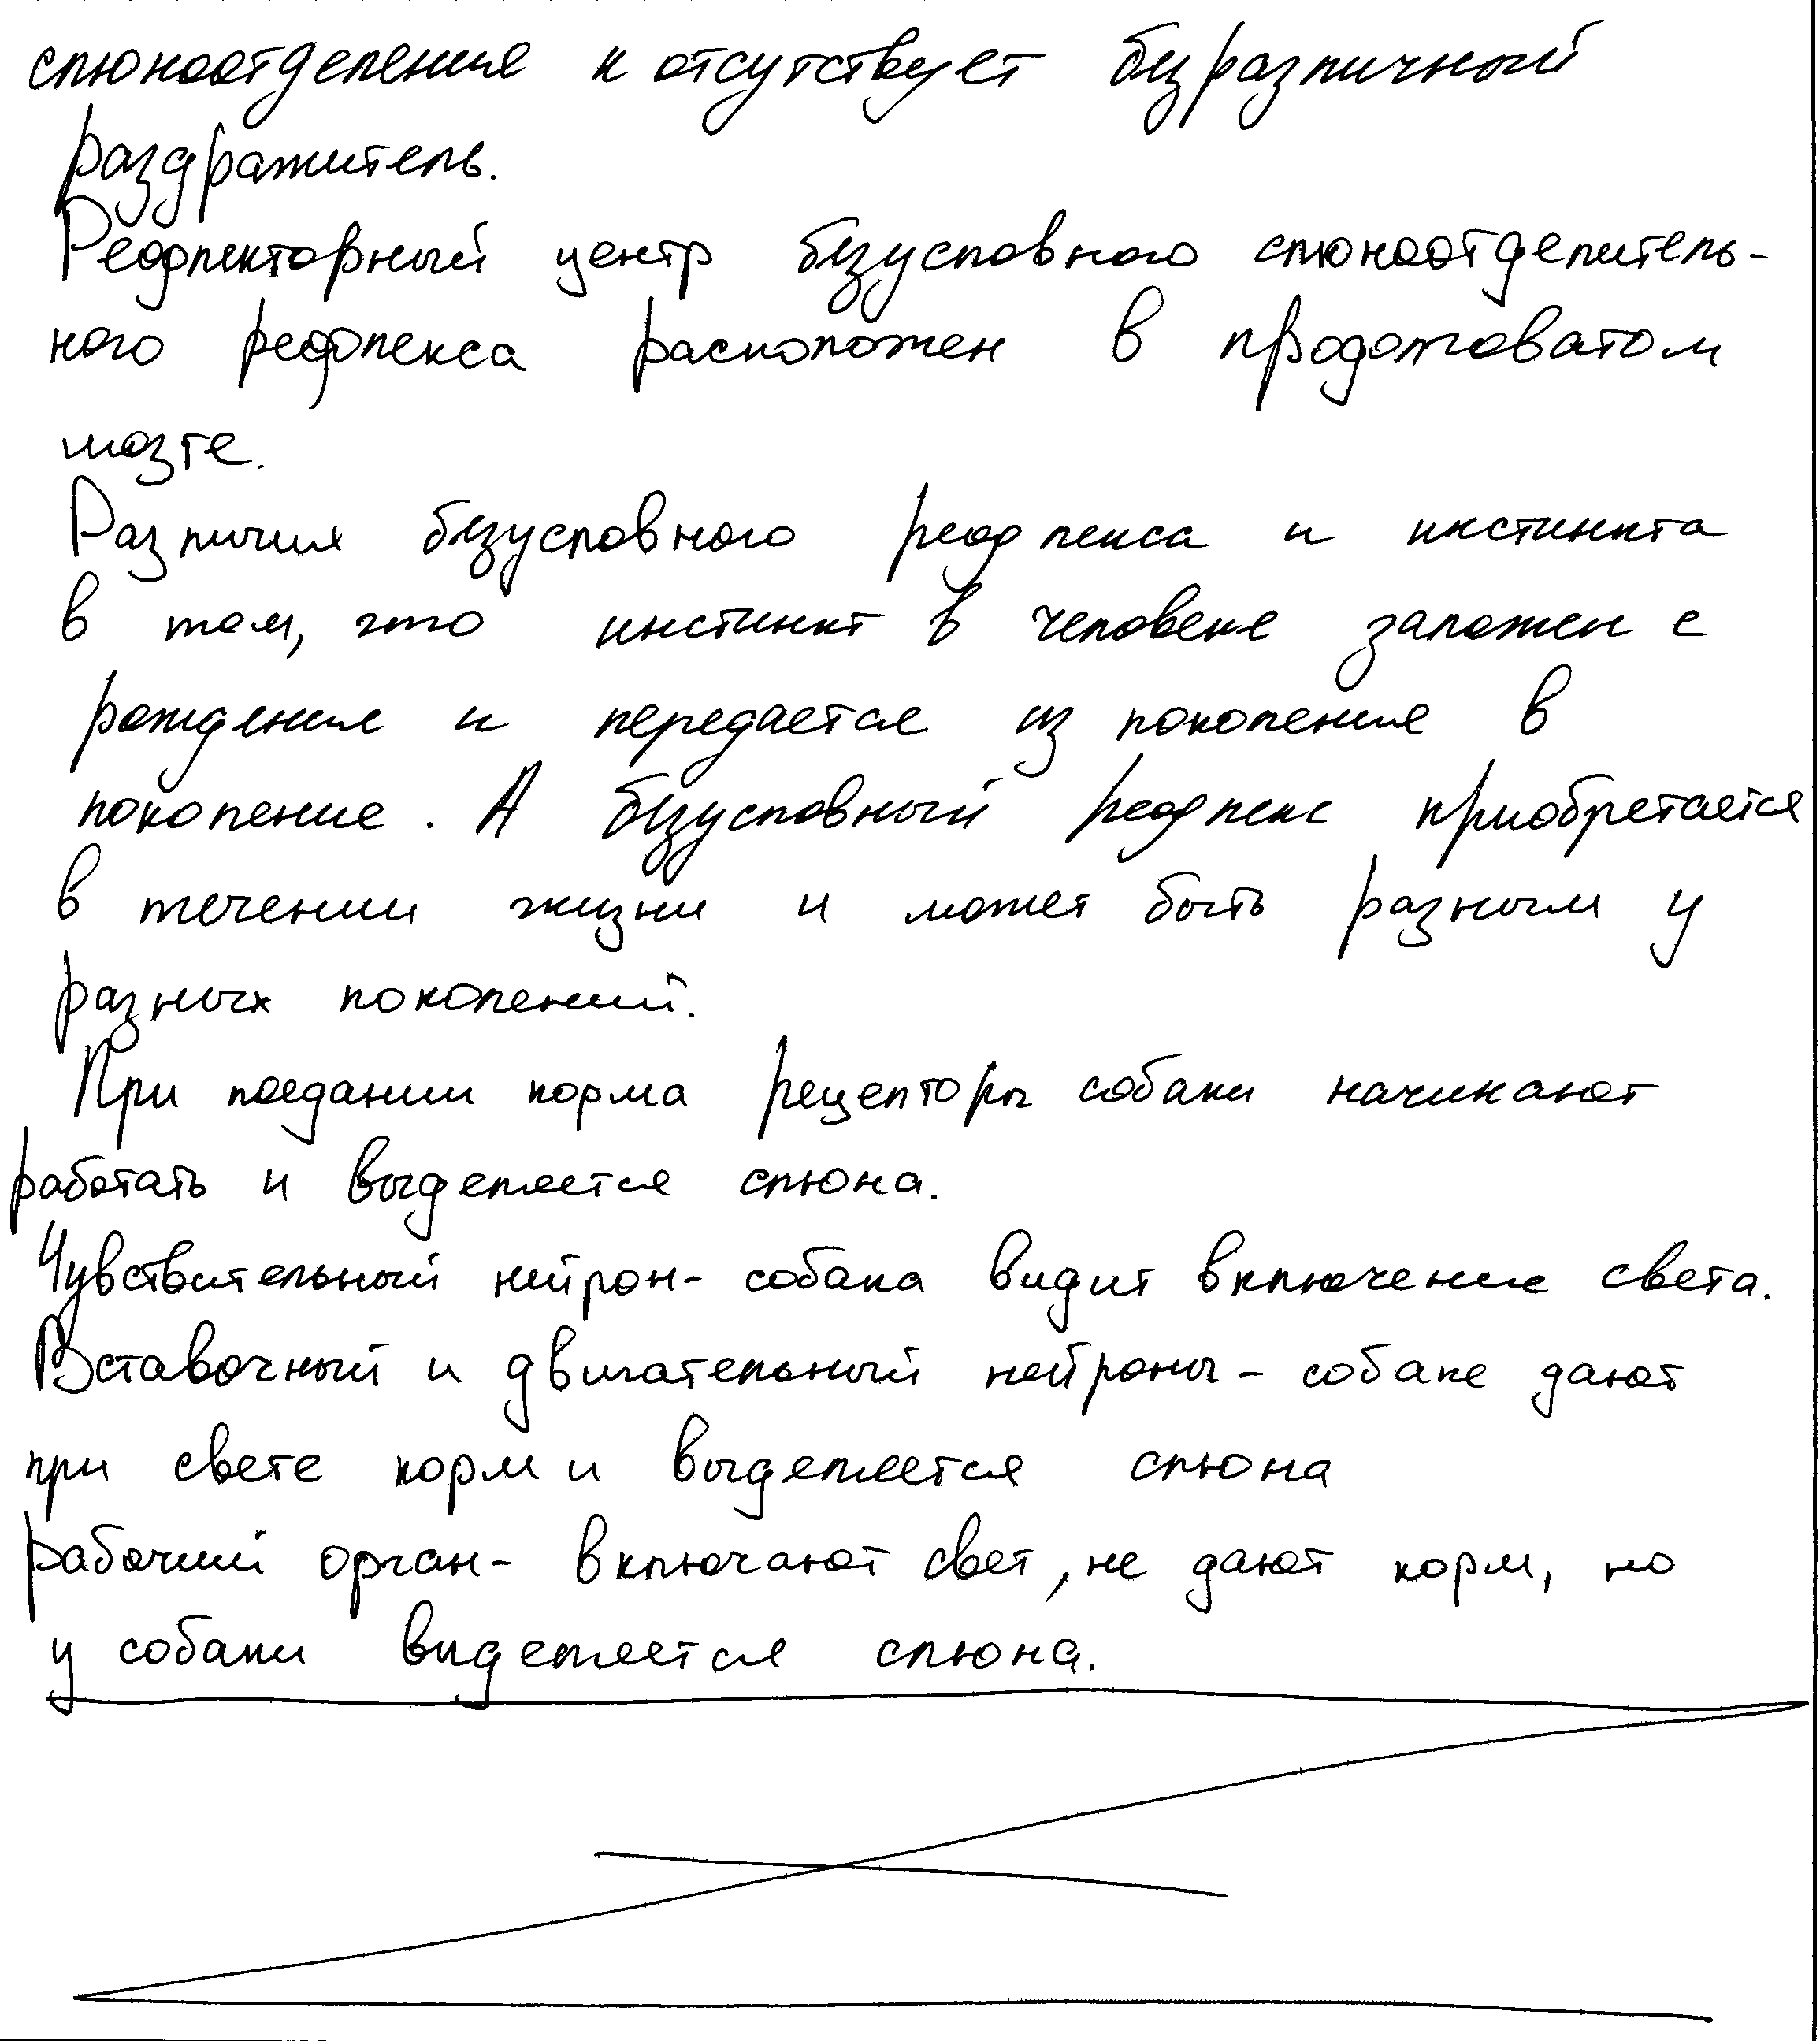 слюноотделения и отсутствует безразличный
раздражитель.
Рефлекторный центр безусловного слюноотделитель-
ного рефлекса расположен в продолговатом
мозге.
Различия безусловного рефлекса и инстинкта
в том, что инстинкт в человеке заложен с
рождения и передается из поколения в
поколение. А безусловный рефлекс приобретается
в течении жизни и может быть разным у
разных поколений.
При поедании корма рецепторы собаки начинают
работать и выделяется слюна.
Чувствительный нейрон- собака видит включение света.
Вставочный и двигательный нейроны- собаке дают
при свете корм и выделяется слюна
рабочий орган- включают свет, не дают корм, но
у собаки виделяется слюна.